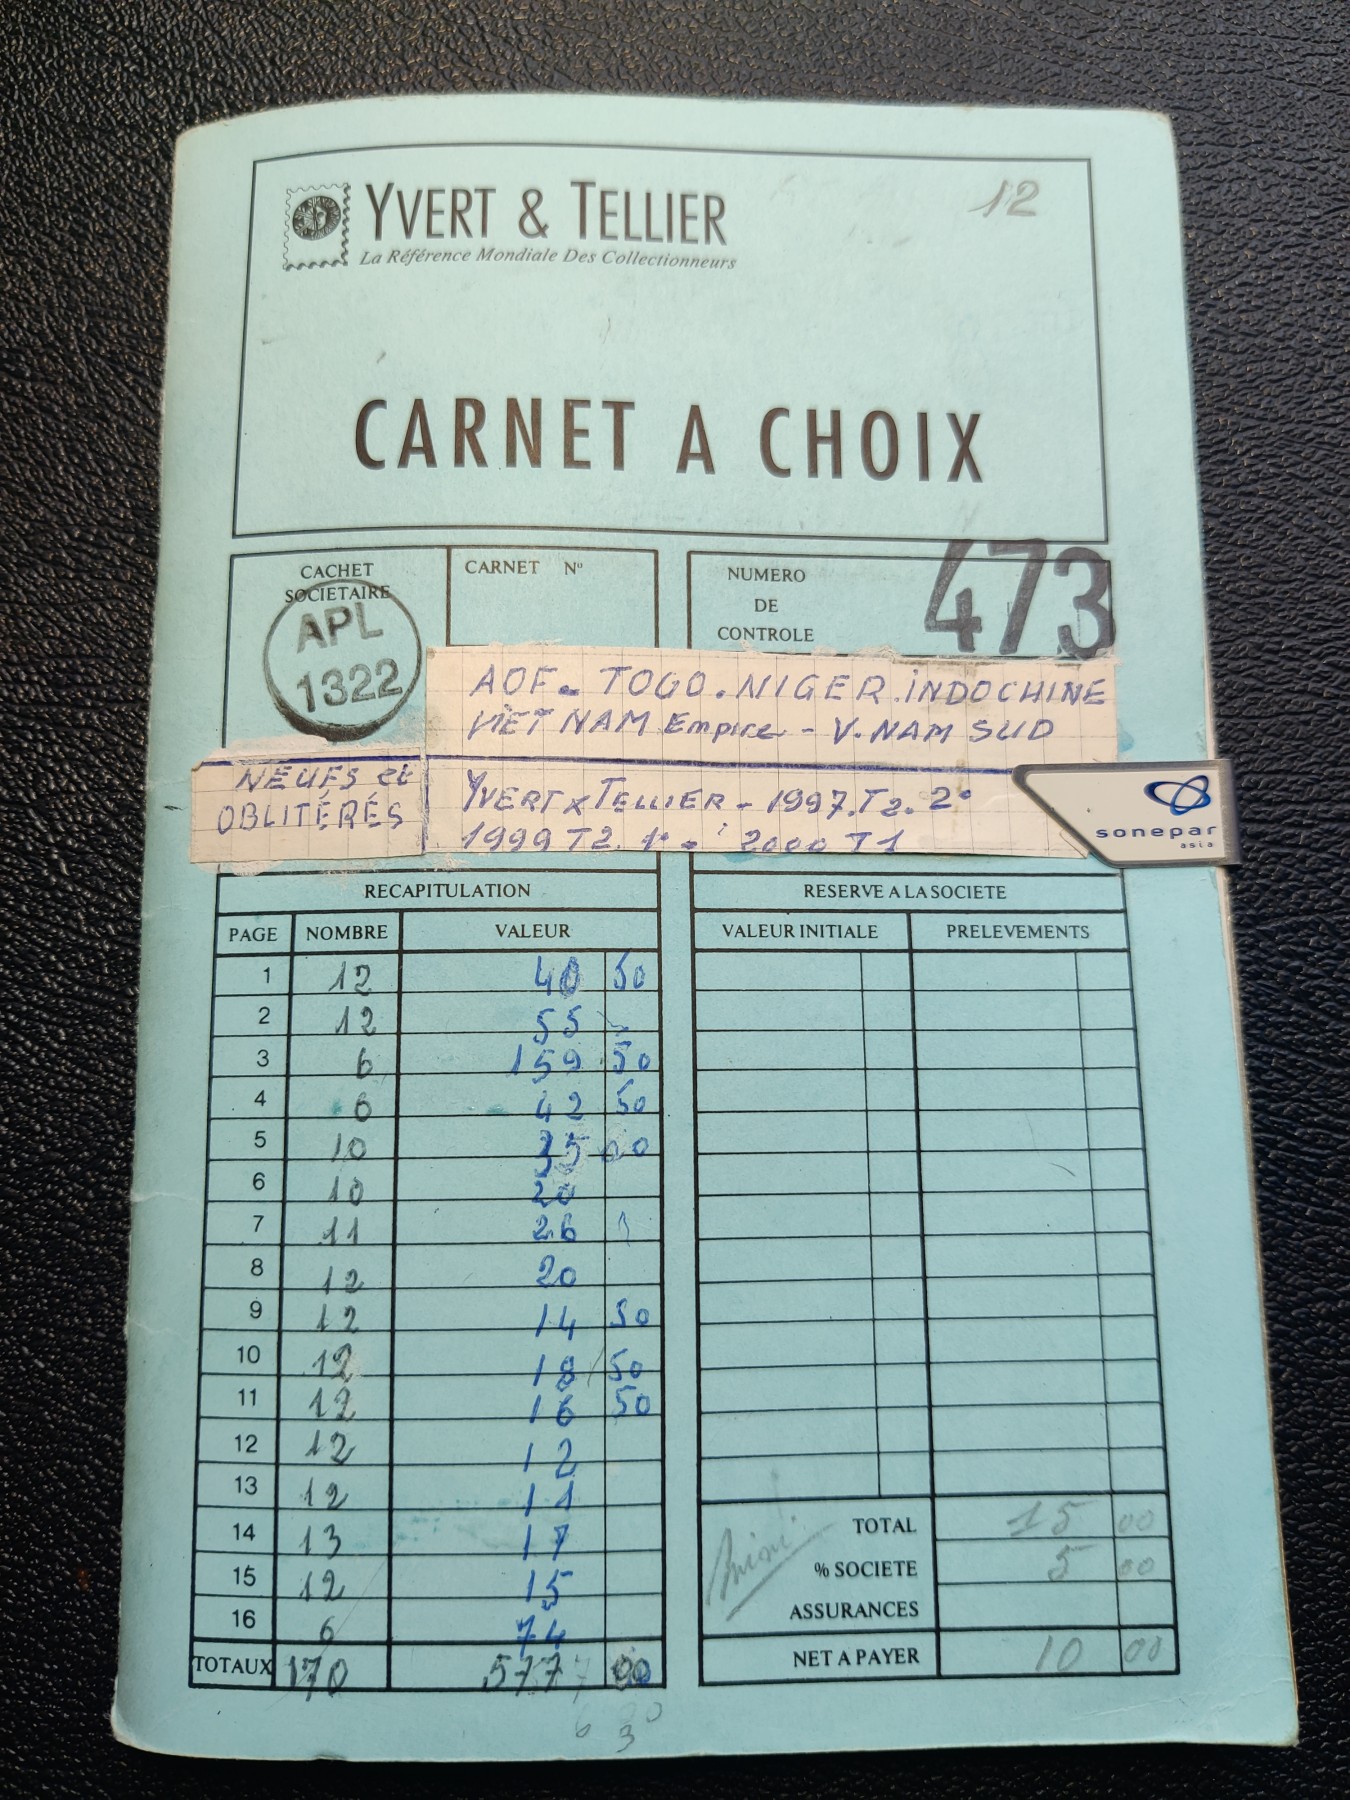 YVERT & TELLIER
La Référence Mondiale Des Collectionneurs
12
CARNET A CHOIX
CACHET SOCIETAIRE
APL
1322
CARNET Nº
NUMERO
DE
CONTROLE
473
AOF - TOGO . NIGER . INDOCHINE
VIET NAM Empire - V. NAM SUD
NEUFS et
OBLITÉRÉS
YVERT x TELLIER - 1997. T2. 2°
1999 T2. 1° - 2000 T1
sonepar
asia
RECAPITULATION
PAGE NOMBRE VALEUR
1 12 40 50
2 12 55
3 6 159 50
4 6 42 50
5 10 35 00
6 10 20
7 11 26
8 12 20
9 12 14 50
10 12 18 50
11 12 16 50
12 12 12
13 12 11
14 13 17
15 12 15
16 6 74
TOTAUX 170 577 00
RESERVE A LA SOCIETE
VALEUR INITIALE PRELEVEMENTS
TOTAL 15 00
% SOCIETE 5 00
ASSURANCES
NET A PAYER 10 00